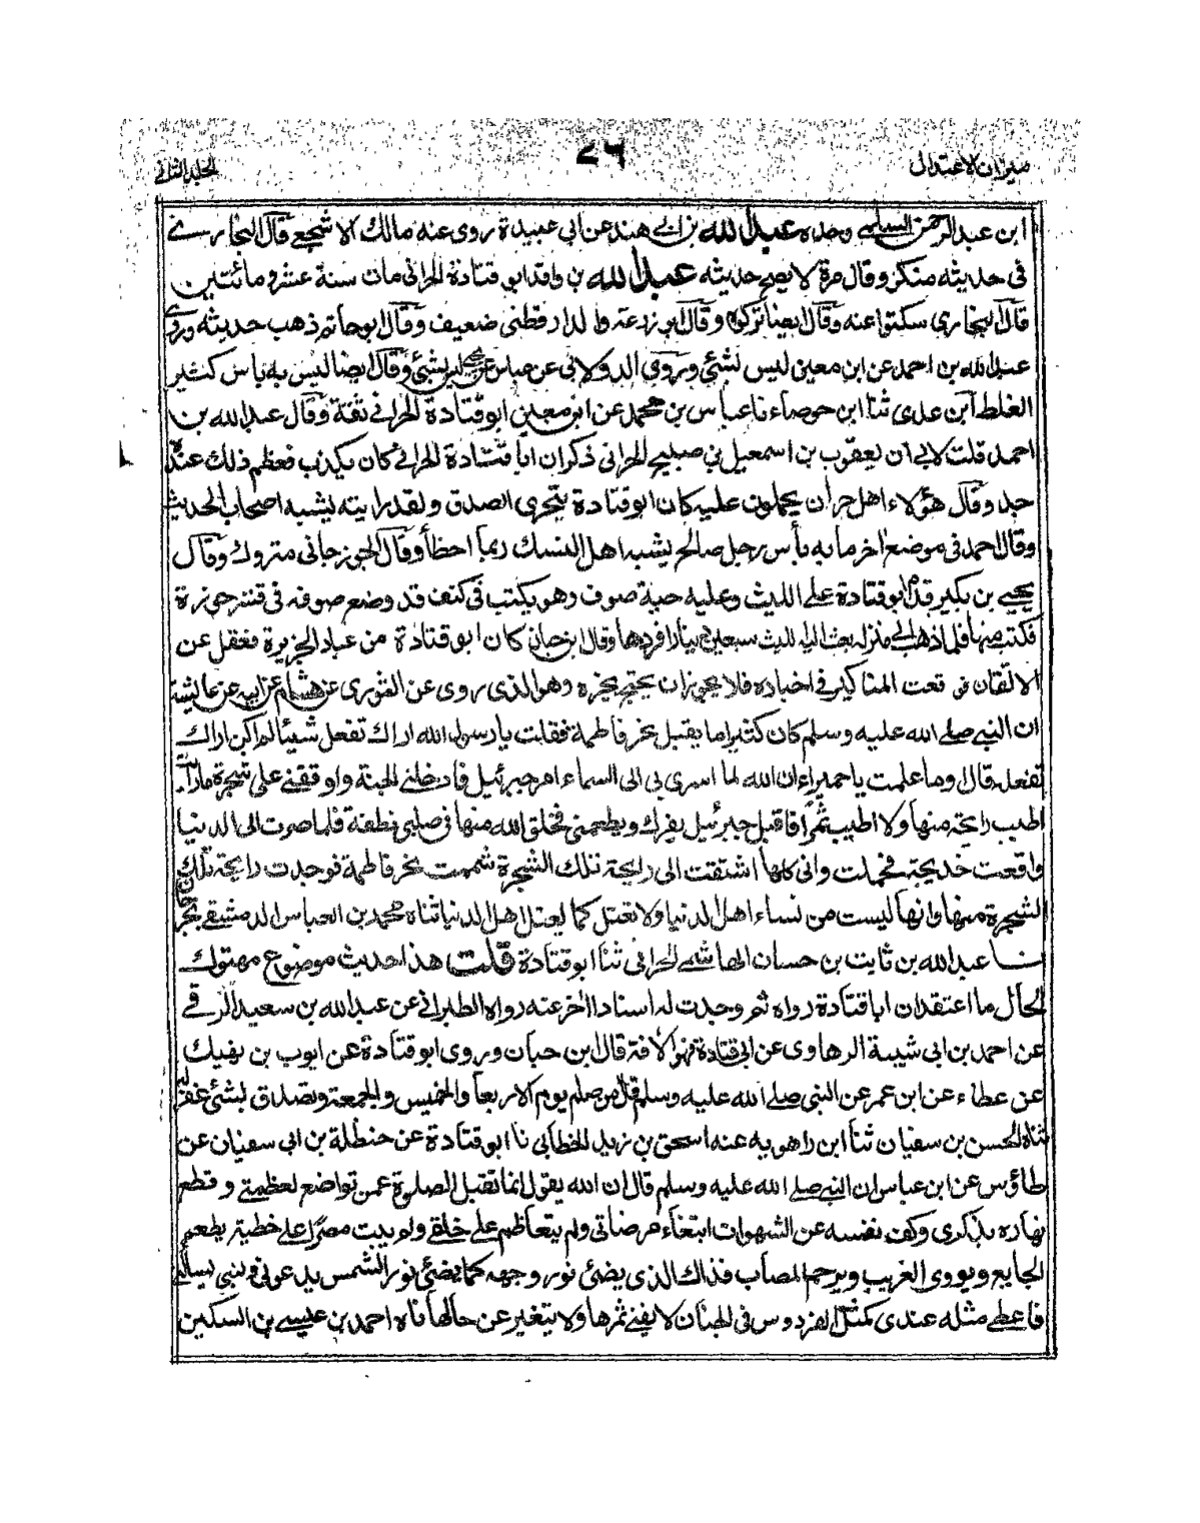 ميزان الاعتدال ٧٦ الجلد الثاني
ابن عبد الرحمن السلمي وحده عبد الله بن ابي هند عن ابي عبيدة روى عنه مالك الاشجع قال البخاري
في حديثه منكر وقال مرة لا يصح حديثه عبد الله بن واقد ابو قتادة الحراني مات سنة عشر ومائتين
قال البخاري سكتوا عنه وقال ايضا تركوه وقال ابو زرعة والدارقطني ضعيف وقال ابو حاتم ذهب حديثه وروى
عبد الله بن احمد عن ابن معين ليس بشئ وروى الدولابي عن عباس عن يحيى ليس بشئ وقال ايضا ليس به باس كثير
الغلط ابن عدى ثنا ابن حوصاء نا عباس بن محمد عن ابن معين ابو قتادة الحراني ثقة وقال عبد الله بن
احمد قلت لابي ان يعقوب بن اسمعيل بن صبيح الحرانى ذكر ان ابا قتادة الحراني كان يكذب فعظم ذلك عنده
جدا وقال هؤلاء اهل حران يحملون عليه كان ابو قتادة يتحرى الصدق ولقد رايته يشبه اصحاب الحديث
وقال احمد في موضع اخر ما به بأس رجل صالح يشبه اهل النسك ربما اخطأ وقال الجوزجانى متروك وقال
يحيى بن بكير قدم ابو قتادة على الليث وعليه جبة صوف وهو يكتب في كتف قد وضع صوفه في قشر جوزة
فكتب منها فلما ذهب الى منزله بعث اليه الليث سبعين دينارا فردها وقال ابن حبان كان ابو قتادة من عباد الجزيرة فغفل عن
الاتقان فوقعت المناكير في اخباره فلا يجوز ان يحتج بخبره وهو الذى روى عن الثورى عن هشام عن ابيه عن عائشة
ان النبي صلى الله عليه وسلم كان كثيرا ما يقبل نحر فاطمة فقلت يا رسول الله اراك تفعل شيئا لم اكن اراك
تفعله قال او ما علمت يا حميراء ان الله لما اسرى بي الى السماء امر جبرئيل فادخلني الجنة واوقفني على شجرة ما رأيت
اطيب رائحة منها ولا اطيب ثمرا فاقبل جبرئيل يفرك ويطعمني فخلق الله منها في صلبي نطفة فلما صرت الى الدنيا
واقعت خديجة فحملت وانى كلما اشتقت الى رايحة تلك الشجرة شممت نحر فاطمة فوجدت رايحة تلك
الشجرة منها وانها ليست من نساء اهل الدنيا ولا تعتل كما يعتل اهل الدنيا ثناه محمد بن العباس الدمشقي بجرجان
نا عبد الله بن ثابت بن حسان الهاشمي الحراني ثنا ابو قتادة قلت هذا حديث موضوع مهتوك
الحال ما اعتقد ان ابا قتادة رواه ثم وجدت له اسنادا اخر عنه رواه الطبراني عن عبد الله بن سعيد الرقي
عن احمد بن ابى شيبة الرهاوى عن ابى قتادة فهو الآفة قال ابن حبان وروى ابو قتادة عن ايوب بن نهيك
عن عطاء عن ابن عمر عن النبى صلى الله عليه وسلم قال من صام يوم الاربعا والخميس والجمعة وتصدق بشئ غفر له
ثناه الحسن بن سفيان ثنا ابن راهويه عنه اسحق بن زيد الخطابي نا ابو قتادة عن حنظلة بن ابى سفيان عن
طاؤس عن ابن عباس ان النبي صلى الله عليه وسلم قال ان الله يقول انما تقبل الصلوة عمن تواضع لعظمتي وقطع
نهاره بذكرى وكف نفسه عن الشهوات ابتغاء مرضاتى ولم يتعاظم على خلقي ولم يبت مصرا على خطيئة يطعم
الجايع ويووى الغريب ويرحم المصاب فذاك الذى يضئ نور وجهه كما يضئ نور الشمس يدعونى فالبى يسألني
فاعطي مثله عندى كمثل الفردوس فى الجنان لا يفنى ثمرها ولا يتغير عن حالها ناه احمد بن عيسى بن السكين